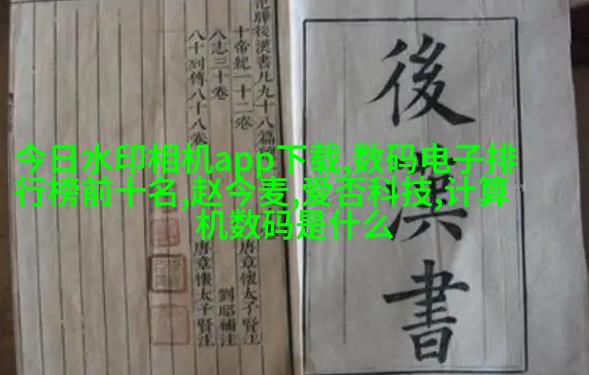 今日水印相机app下载,数码电子排
行榜前十名,赵今麦,爱否科技,计算
机数码是什么
後漢書
後漢書凡九十八篇
十帝紀一十二卷 唐章懷太子賢注
八志三十卷 劉昭補注
八十列傳八十八卷 唐章懷太子賢注